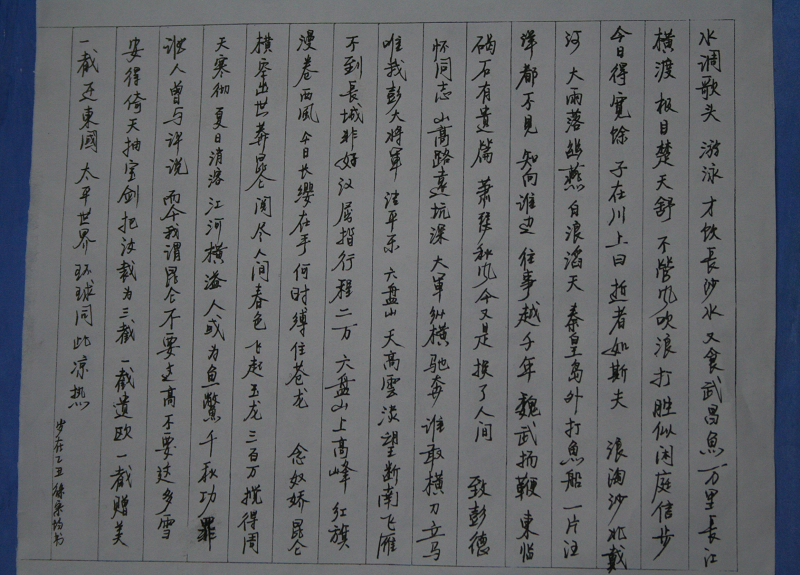 水調歌头 游泳 才饮長沙水 又食武昌魚 万里長江
横渡 极目楚天舒 不管风吹浪打 胜似闲庭信步
今日得寬馀 子在川上曰 逝者如斯夫 浪淘沙 北戴
河 大雨落幽燕 白浪滔天 秦皇岛外打魚船 一片汪
洋都不見 知向谁边 往事越千年 魏武扬鞭 東临
碣石有遗篇 萧瑟秋风今又是 换了人间 致彭德
怀同志 山高路遠坑深 大軍纵横驰奔 谁敢横刀立马
唯我彭大將軍 清平乐 六盘山 天高雲淡 望断南飞雁
不到長城非好汉 屈指行程二万 六盘山上高峰 红旗
漫卷西風 今日长缨在手 何时缚住苍龙 念奴娇 昆仑
横空出世 莽昆仑 阅尽人间春色 飞起玉龙三百万 搅得周
天寒彻 夏日消溶 江河横溢 人或为魚鳖 千秋功罪
谁人曾与评说 而今我谓昆仑 不要这高 不要这多雪
安得倚天抽宝剑 把汝裁为三截 一截遗欧 一截赠美
一截还東國 太平世界 环球同此凉热
岁在乙丑